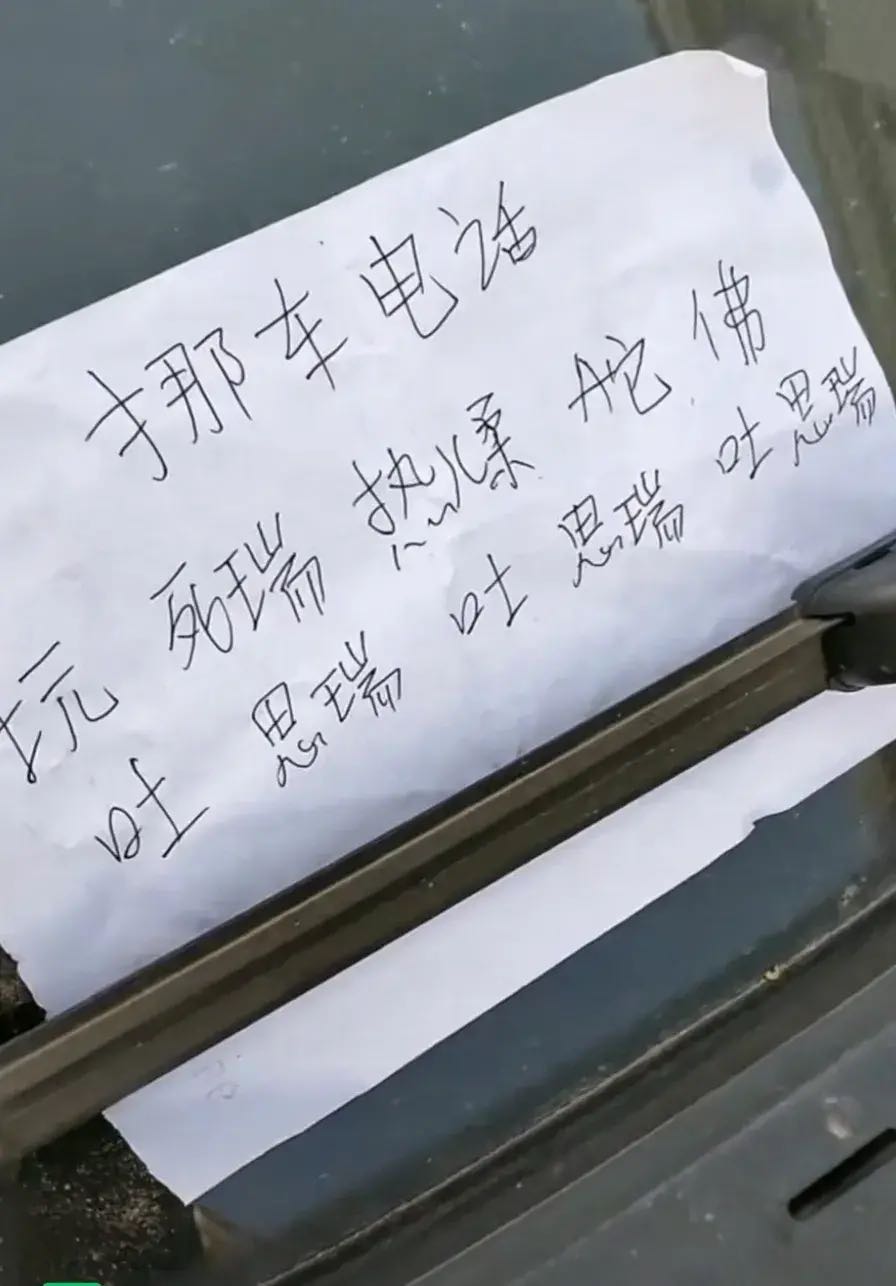 挪车电话
玩 死瑞 热揉 舵 佛
吐 思瑞 吐 思瑞 吐思瑞